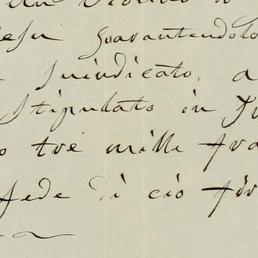 esu Guarantendolo
Suindicato, a
Stipulato in
o tre mille fra
fede di ciò fir